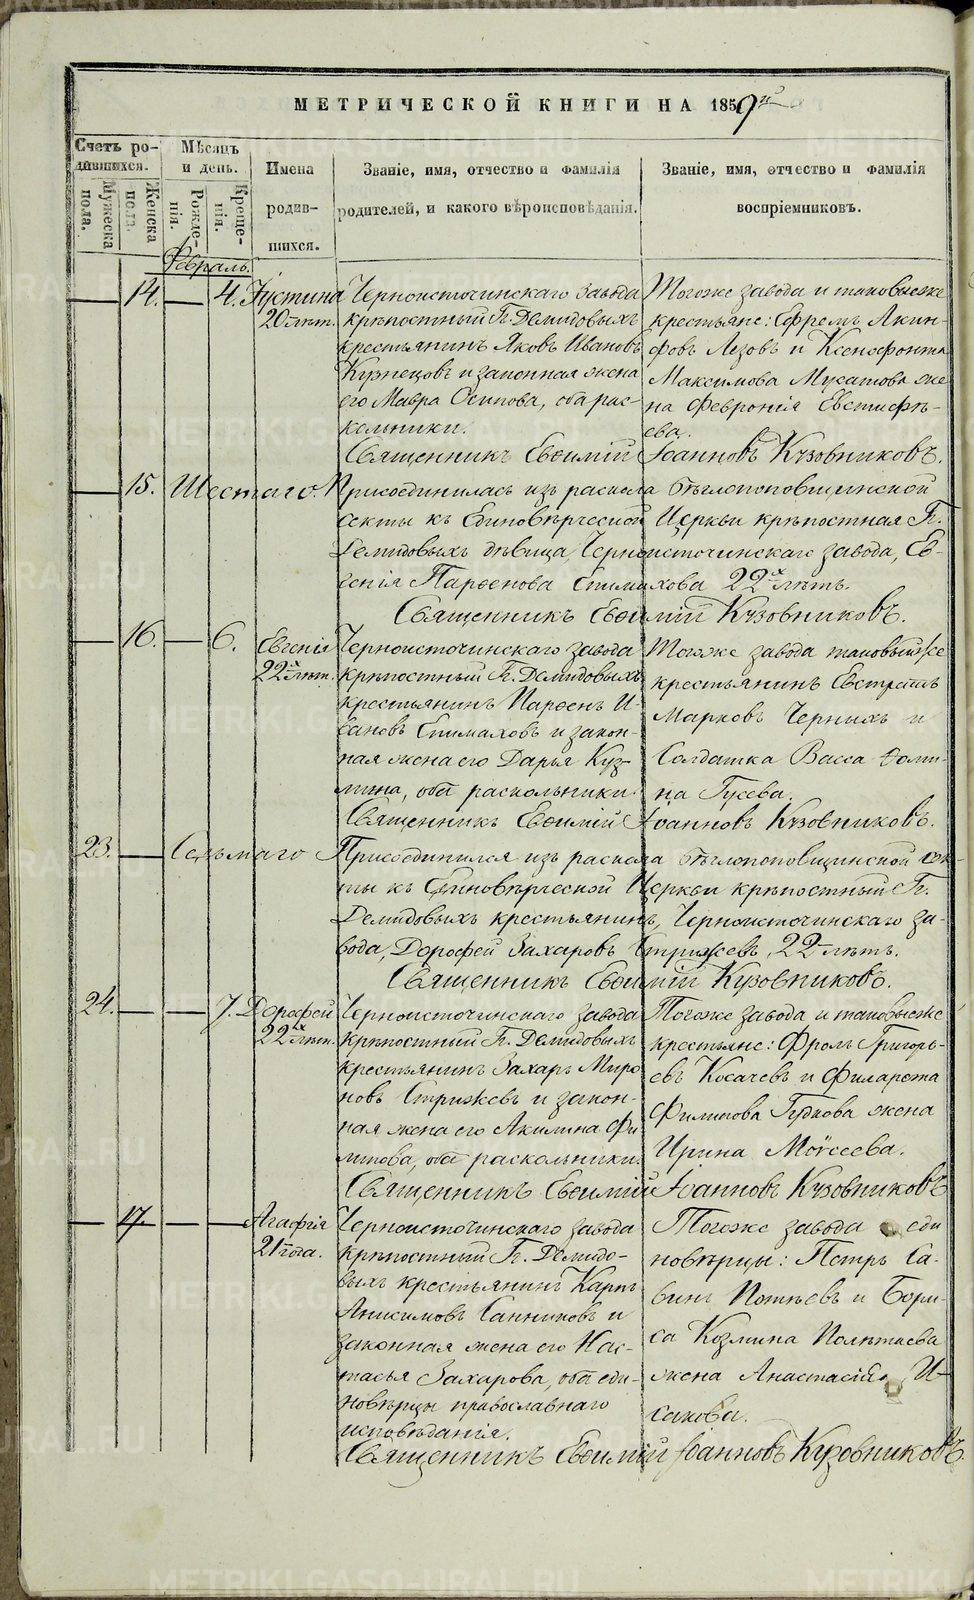 МЕТРИЧЕСКОЙ КНИГИ НА 1859й
Счетъ ро-
дившихся.
Мужеска пола.
Женска пола.
Мѣсяцъ
и день.
Рожде-
нія.
Креще-
нія.
Имена
родив-
шихся.
Званіе, имя, отчество и фамилія
родителей, и какого вѣроисповѣданія.
Званіе, имя, отчество и фамилія
воспріемниковъ.
Февраль.
14. 4. Іустина
20 лѣт.
Черноисточинскаго завода
крѣпостный Гг. Демидовыхъ
крестьянинъ Яковъ Ивановъ
Кузнецовъ и законная жена
его Мавра Осипова, оба рас-
кольники.
Тогоже завода и таковыеже
крестьяне: Ефремъ Акин-
фовъ Лезовъ и Ксенофонта
Максимова Мусатова же-
на Февронія Евстифѣ-
ева.
Священникъ Евѳимій Іоанновъ Кузовниковъ.
15. Шестаго. Присоединилась изъ раскола бѣглопоповщинской
секты къ Единовѣрческой Церкви крѣпостная Гг.
Демидовыхъ дѣвица, Черноисточинскаго завода, Ев-
генія Парѳенова Епимахова 22х лѣтъ.
Священникъ Евѳимій Кузовниковъ.
16. 6. Евгенія
22х лѣт.
Черноисточинскаго завода
крѣпостный Гг. Демидовыхъ
крестьянинъ Парѳенъ И-
вановъ Епимаховъ и закон-
ная жена его Дарья Куз-
мина, оба раскольники.
Тогоже завода таковыйже
крестьянинъ Евстратъ
Марковъ Черныхъ и
Солдатка Васса Ѳоми-
на Гусева.
Священникъ Евѳимій Іоанновъ Кузовниковъ.
23. Седьмаго Присоединился изъ раскола бѣглопоповщинской сек-
ты къ Единовѣрческой Церкви крѣпостный Гг.
Демидовыхъ крестьянинъ, Черноисточинскаго за-
вода, Дорофей Захаровъ Стрижевъ, 22 лѣтъ.
Священникъ Евѳимій Кузовниковъ.
24. 7. Дорофей
22х лѣт.
Черноисточинскаго завода
крѣпостный Гг. Демидовыхъ
крестьянинъ Захаръ Миро
новъ Стрижевъ и закон-
ная жена его Акилина Фи
липова, оба раскольники.
Тогоже завода и таковыеже
крестьяне: Фролъ Григорь-
евъ Косачевъ и Филарета
Филипова Гудкова жена
Ирина Моѵсеева.
Священникъ Евѳимій Іоанновъ Кузовниковъ
17. Агафія
21 года.
Черноисточинскаго завода
крѣпостный Гг. Демидо-
выхъ крестьянинъ Карпъ
Анисимовъ Санниковъ и
законная жена его Нас-
тасья Захарова, оба еди-
новѣрцы православнаго
исповѣданія.
Тогоже завода еди
новѣрцы: Петръ Са-
винъ Потѣевъ и Бори-
са Козмина Полѣтаева
жена Анастасія И-
сакова.
Священникъ Евѳимій Іоанновъ Кузовниковъ
METRIKI.GASO-URAL.RU